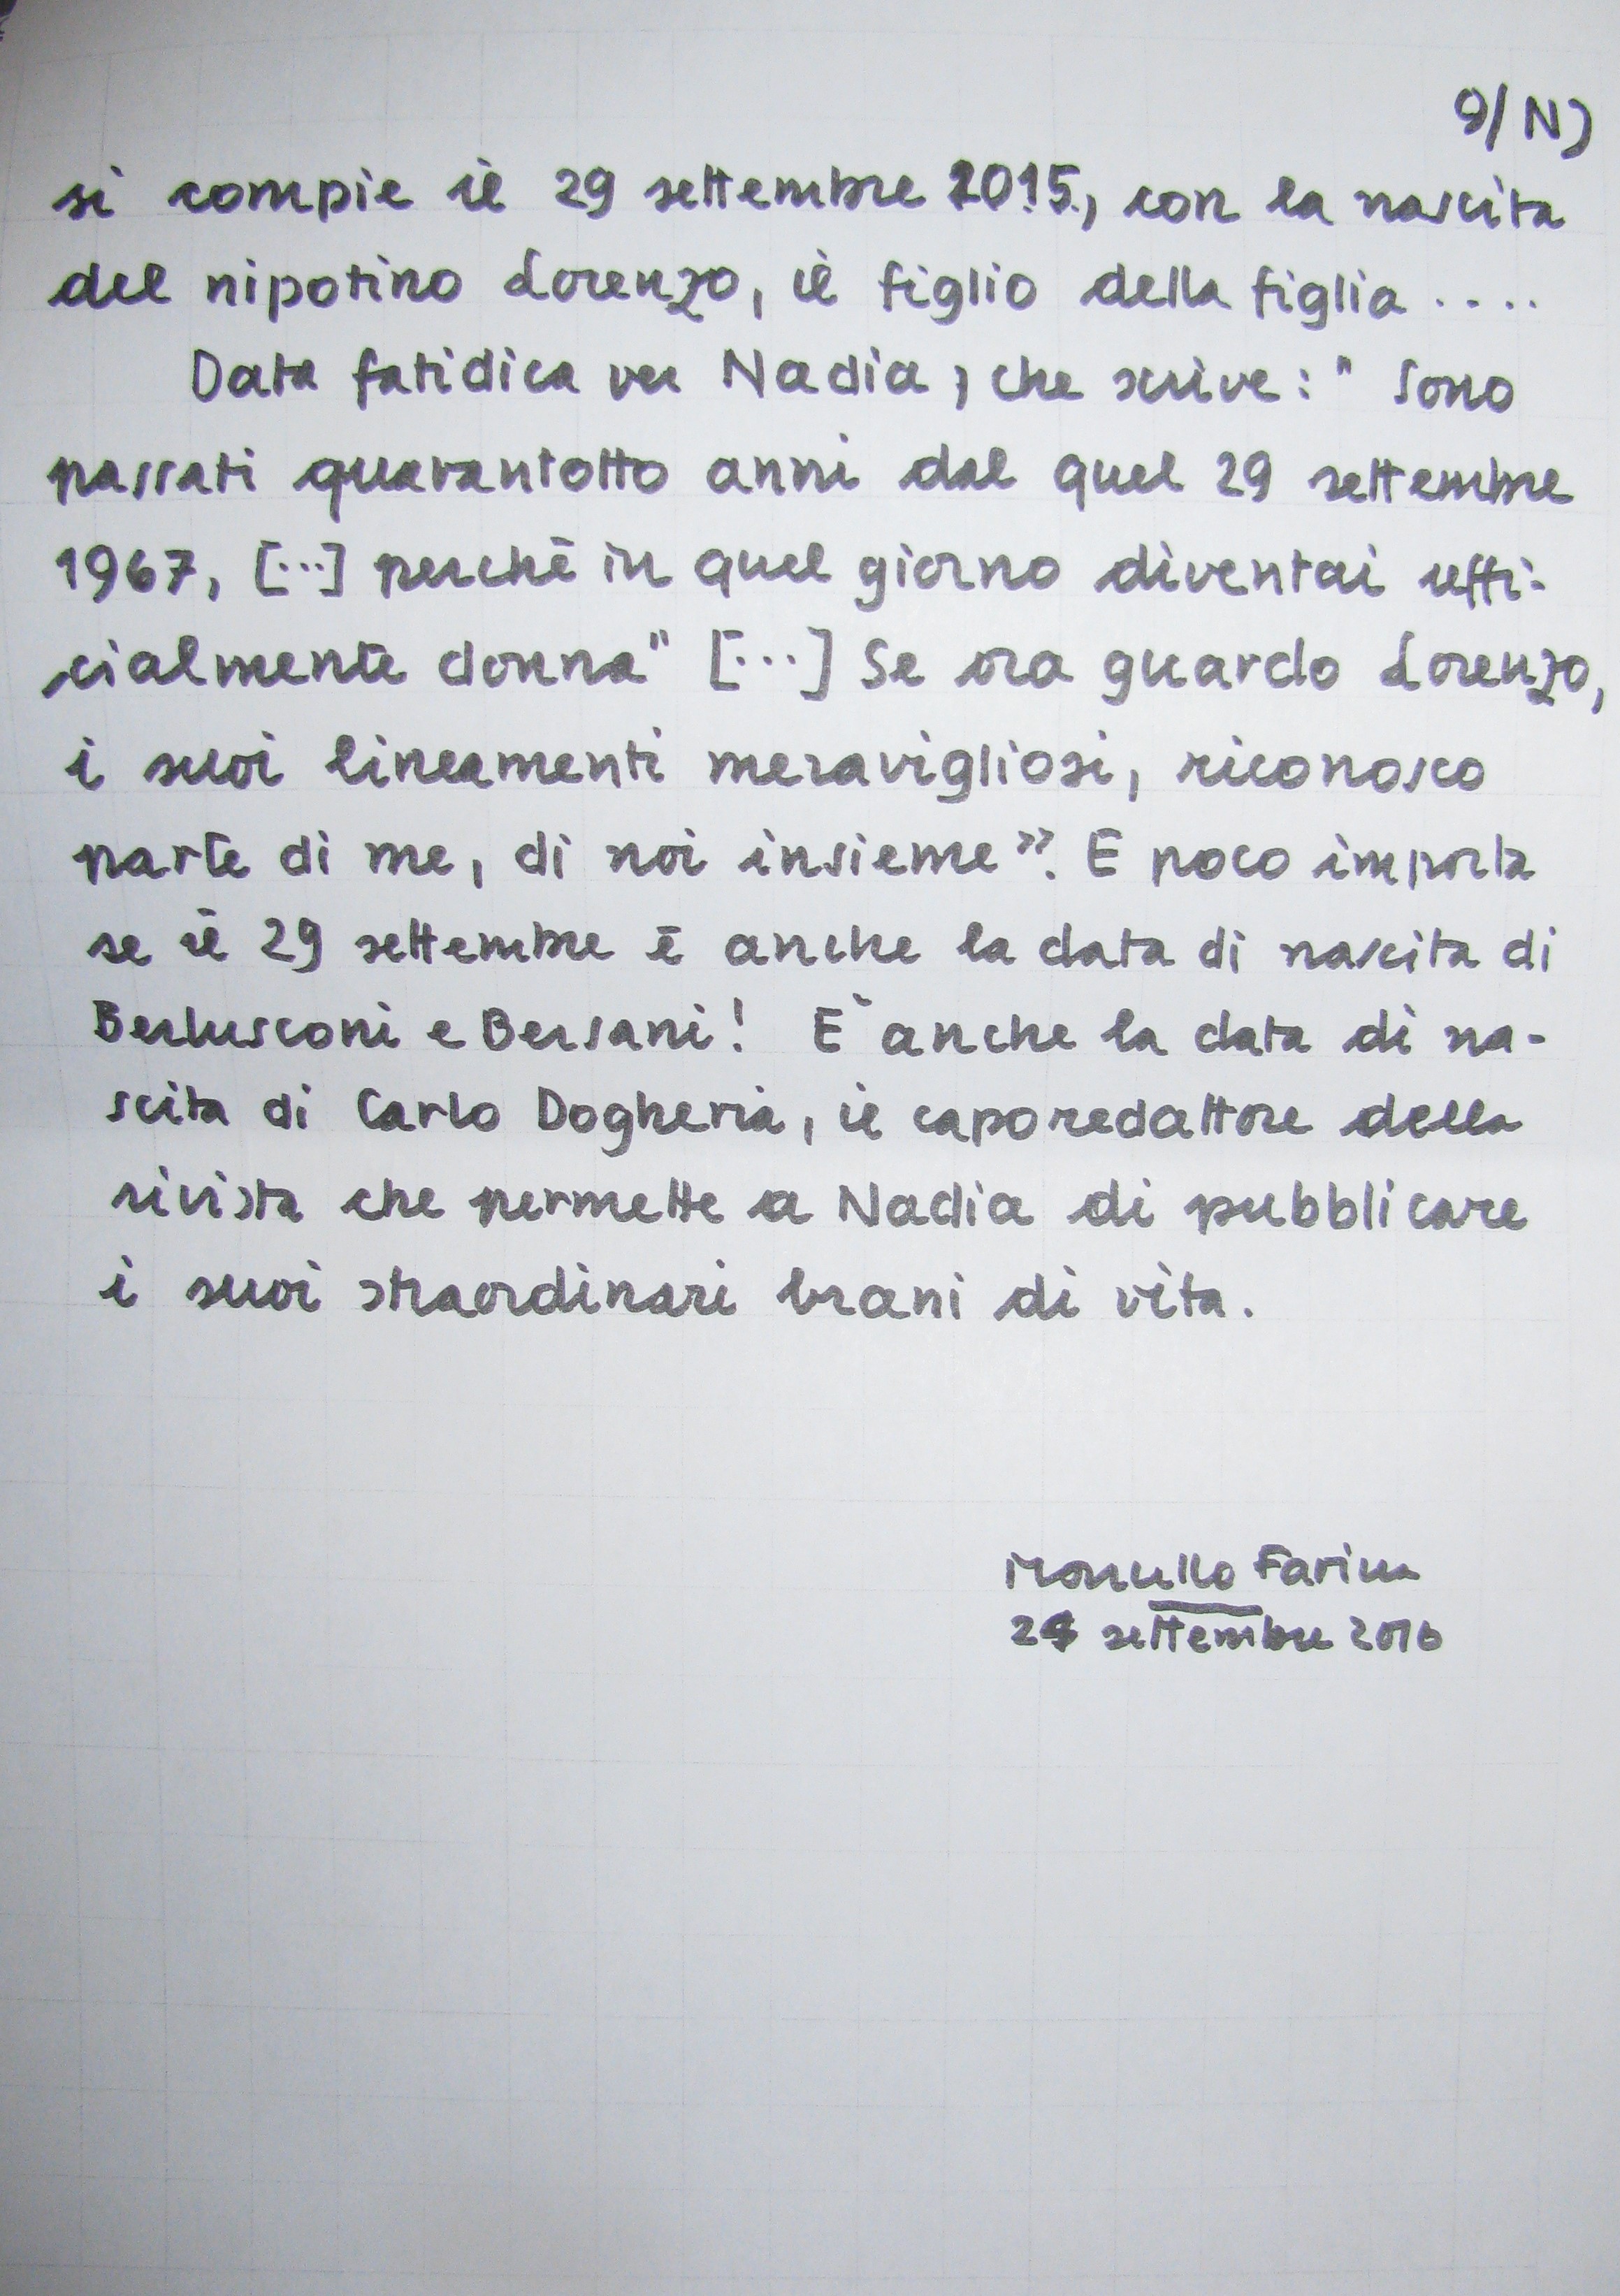 9/N)
si compie il 29 settembre 2015, con la nascita
del nipotino Lorenzo, il figlio della figlia ....
Data fatidica per Nadia, che scrive: " Sono
passati quarantotto anni dal quel 29 settembre
1967, [...] perché in quel giorno diventai uffi-
cialmente donna" [...] Se ora guardo Lorenzo,
i suoi lineamenti meravigliosi, riconosco
parte di me, di noi insieme". E poco importa
se il 29 settembre è anche la data di nascita di
Berlusconi e Bersani! E` anche la data di na-
scita di Carlo Dogheria, il caporedattore della
rivista che permette a Nadia di pubblicare
i suoi straordinari brani di vita.
Farina
settembre 2016